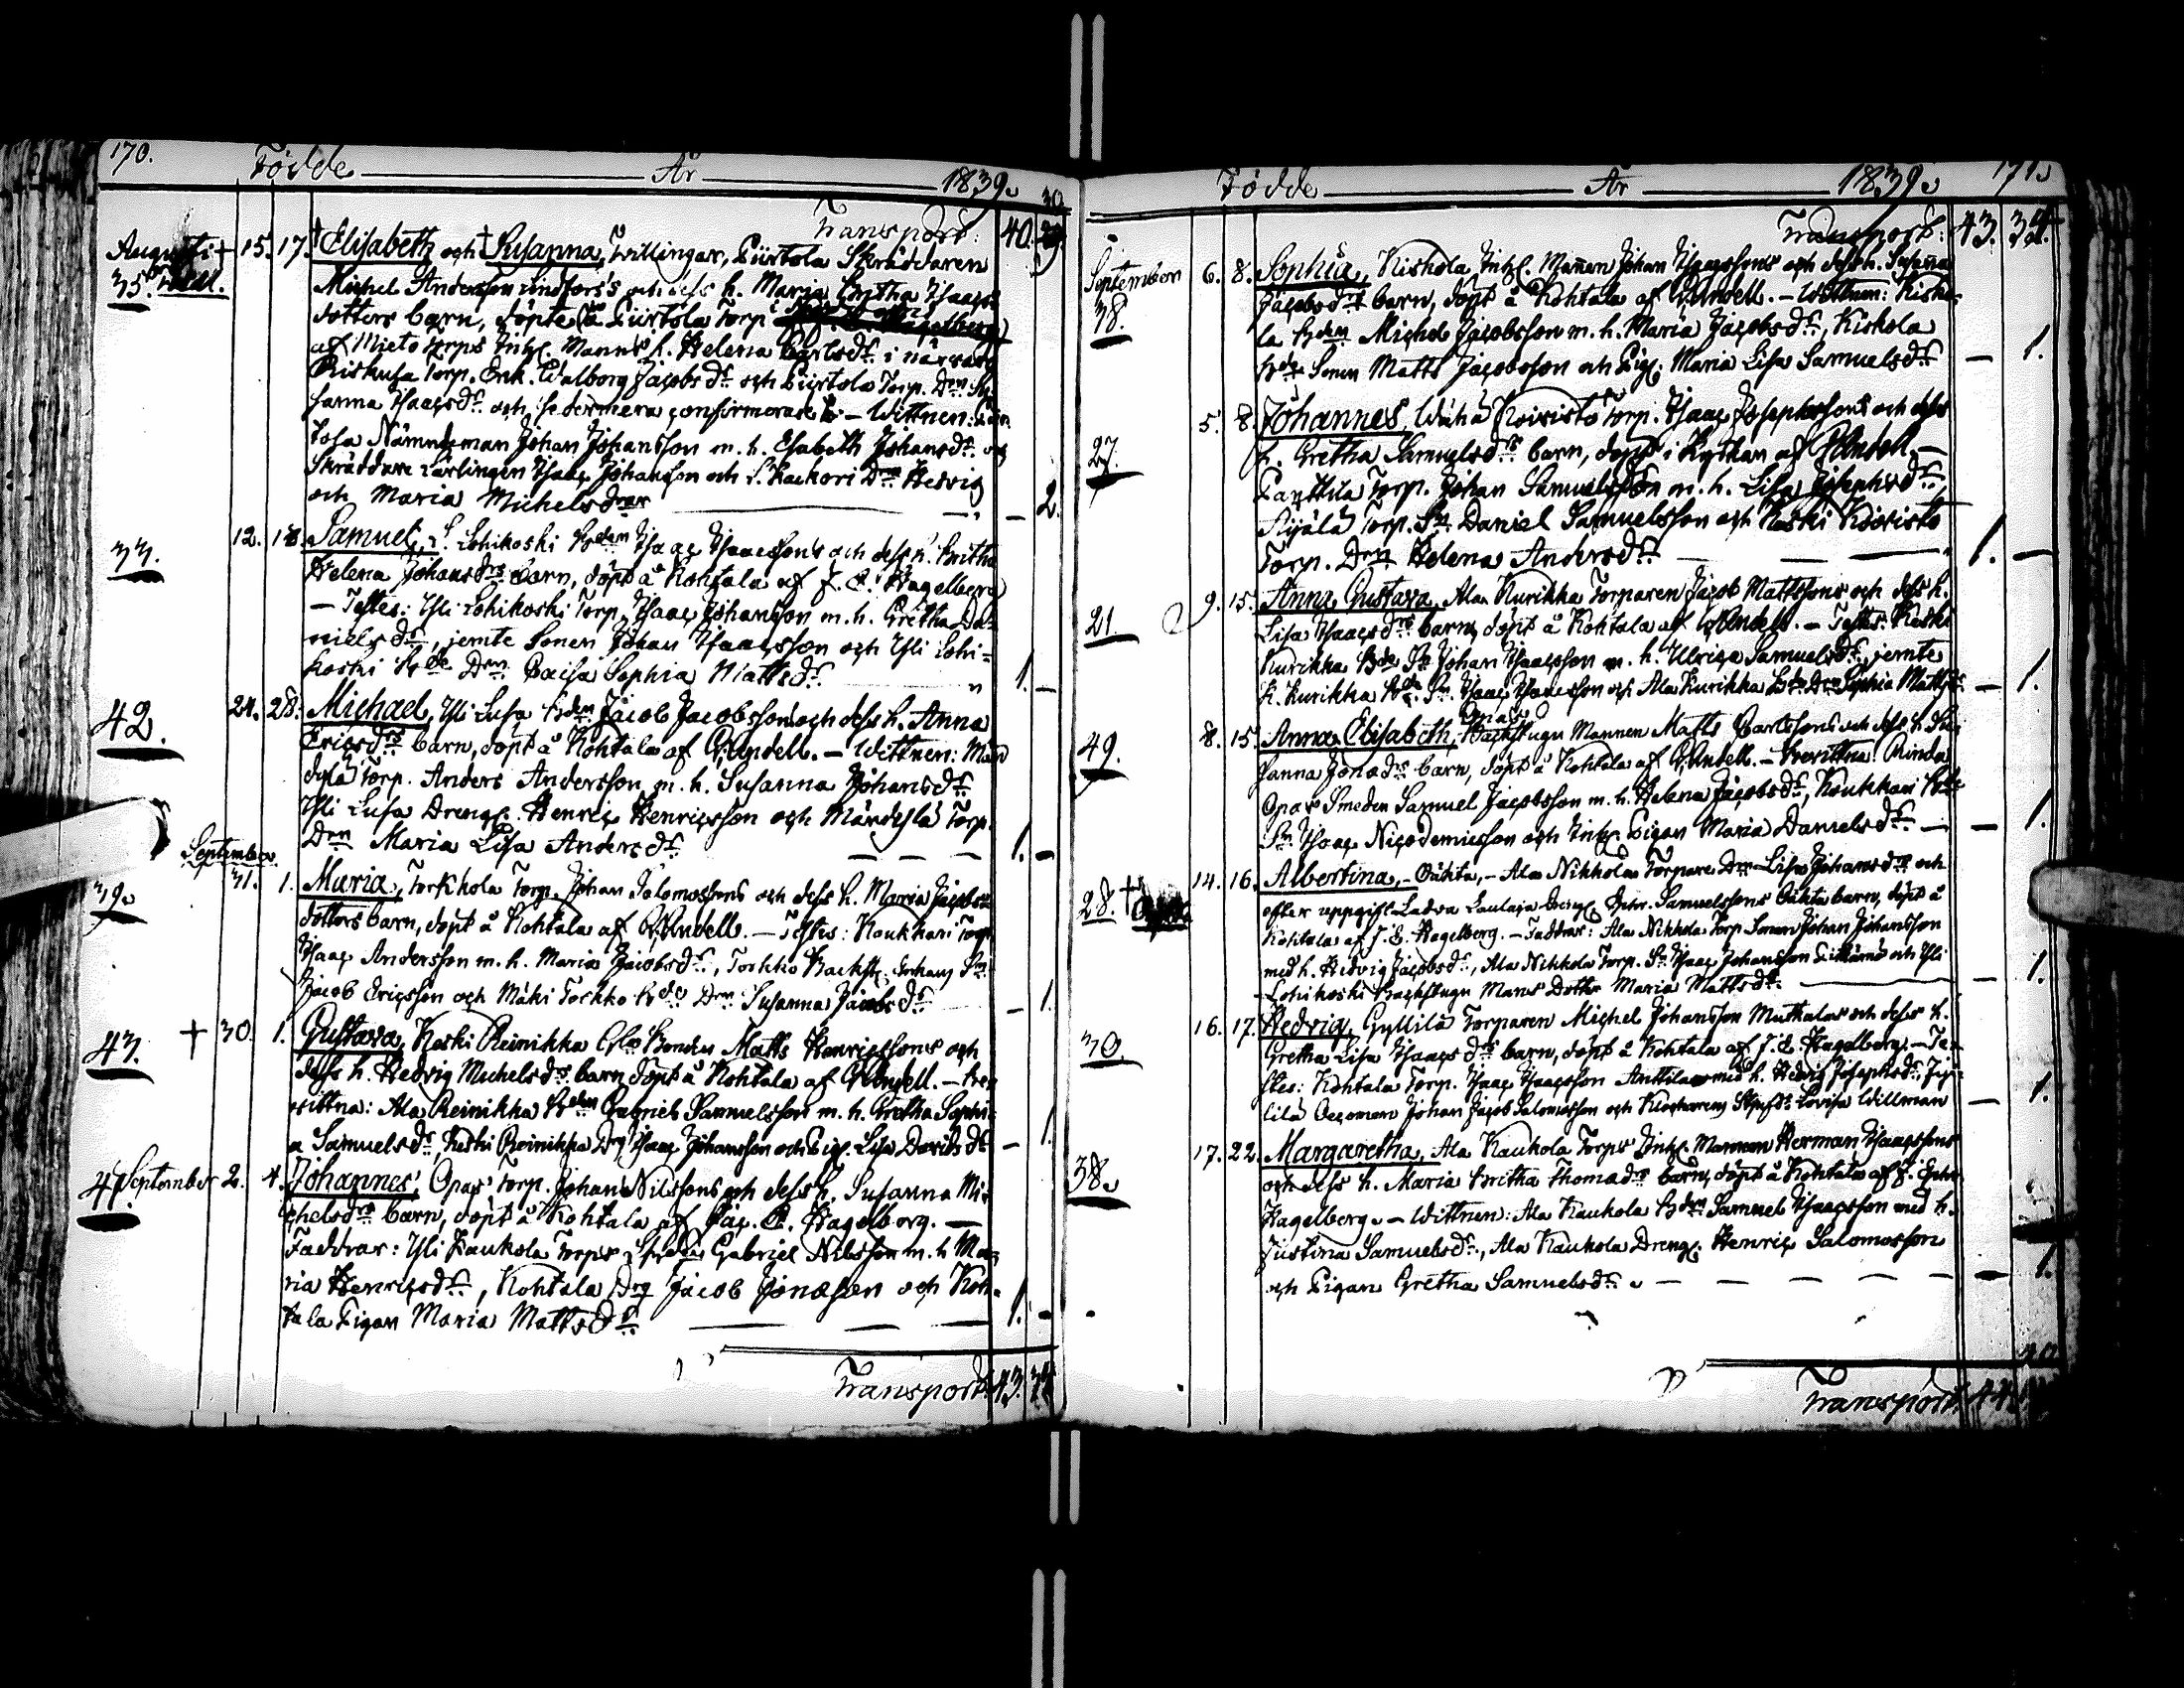 170. Födde År 1839.
Transport: 40. 30
Augusti + 15. 17. Elisabeth och Susanna, Twillingar, Piirtola Skräddaren
35. Michel Andersson Lindfors's och dess h. Maria Britha Isaacs
dotters barn, döpte (å Piirtola Torp
af Mieto Torps Inh. Manns h. Helena Carlsdr. i närvaro
Riskula Torp. Enk. Walborg Jacobsdr. och Piirtola Torp. Drn Su
sanna Isaacsdr. och sedermera confirmerade – Wittnen:
tola Nämndeman Johan Johansson m. h. Elsabeth Johansdr. och
Skräddare Lärlingen Isaac Johansson och Drn Hedvig
och Maria Michelsdrar – 2.
33. 12. 18. Samuel, Y. Lohikoski Bden Isaac Isaacsson's och dess h. Britha
Helena Johansdrs barn, döpt å Kohtala af J. E. Hagelberg
– Testes: Yli Lohikoski Torp. Isaac Johansson m. h. Gretha Da-
nielsdr, jemte Sonen Johan Isaacsson och Yli Lohi=
koski Bde Drn Caisa Sophia Mattsdr. 1. –
42. 24. 28. Michael, Yli Lusa Bden Jacob Jacobssons och dess h. Anna
Ericsdrs barn, döpt å Kohtala af G. Andell. – Wittnen: Män
dylä Torp. Anders Andersson m. h. Susanna Johansdr.
Yli Lusa Drengen Henric Henricsson och Mändylä Torp.
Drn Maria Lisa Andersdr. 1. –
September
39. 31. 1. Maria, Torkkola Torp. Johan Salomossons och dess h. Maria Jacobs
dotters barn, döpt å Kohtala af G. Andell. – Testes: Koukkari Torp.
Isaac Andersson m. h. Maria Jacobsdr., Tockko Backst. Sn
Jacob Ericsson och Mäki Tockko Bde Drn Susanna Jacobsdr. – 1.
43. + 30. 1. Gustava, Koski Reinikka Bonden Matts Henricssons och
dess h. Hedvig Michelsdrs barn döpt å Kohtala af G. Andell. – tro
wittna: Ala Reinikka Bden Gabriel Samuelsson m. h. Gretha Sophi
a Samuelsdr, Koski Reinikka Drg Isaac Johansson och Pig. Lisa Davidsdr – 1.
47. September 2. 4. Johannes, Opas Torp. Johan Nilssons och dess h. Susanna Mi-
chelsdrs barn, döpt å Kohtala af Jac. E. Hagelberg. –
Faddrar: Yli Kaukola Torps Gabriel Nilsson m. h. Ma-
ria Henricsdr., Kohtala Drg Jacob Jonasson och Koh-
tala Pigan Maria Mattsdr. 1. –
Transport. 43. 34
Födde År 1839. 171.
Transport: 43. 34.
September 6. 8. Sophia, Kiskola Inh. Mannen Johan Isaacssons och dess h. Susanna
38. Jacobsdrs barn, döpt å Kohtala af G. Andell. – Wittnen: Kisko-
la Bden Michel Jacobsson m. h. Maria Jacobsdr., Kiskola
Bde Sonen Matts Jacobsson och Pig. Maria Lisa Samuelsdr – 1.
27. 5. 8. Johannes, Wähä Koivisto Torp. Isaac Josephssons och dess
h. Gretha Samuelsdrs barn, döpt i Kyrkan af G. Andell. –
Panttila Torp. Johan Samuelsson m. h. Lisa Josephsdr.,
Äijälä Torp. Sn Daniel Samuelsson och Koski Koivisto
Torp. Drn Helena Andersdr. 1. –
21 9. 15. Anna Gustava, Ala Kurikka Torparen Jacob Mattssons och dess h.
Lisa Isaacsdrs barn, döpt å Kohtala af G. Andell. – Testes: Koski
Kurikka Bde Sn Johan Isaacsson m. h. Ulrica Samuelsdr, jemte
K. Kurikka Bde Sn Isaac Isaacsson och Ala Kurikka Bde Drn Sophia Mattsdr – 1.
Opas
49. 8. 15. Anna Elisabeth, Backstugu Mannen Matts Carlssons och dess h. Su-
sanna Jonasdrs barn, döpt å Kohtala af G. Andell. – Trowittna: Minda
Opas Smeden Samuel Jacobsson m. h. Helena Jacobsdr, Koukkari Bde
Sn Isaac Nicodemusson och Inh. Pigan Maria Danielsdr – 1.
28. + 14. 16. Albertina, – Oäkta, – Ala Nikkola Torpare Drn Lisa Johansdrs och
efter uppgift Ladva Laulaja Dreng. Samuelssons Oäkta barn, döpt å
Kohtala af J. E. Hagelberg. – Faddrar: Ala Nikkola Torp. Sonen Johan Johansson
med h. Hedvig Jacobsdr., Ala Nikkola Torp. Sn Isaac Johansson och Yli
Lohikoski Backstugu Mans Dotter Maria Mattsdr – 1.
30. 16. 17. Hedvig, Gyllilä Torparen Michel Johansson Muthalas och dess h.
Gretha Lisa Isaacsdrs barn, döpt å Kohtala af J. E. Hagelberg. – Te-
stes: Kohtala Torp. Isaac Isaacsson Anttila med h. Hedvig Josephsdr., Jyl-
lilä Oeconomen Johan Jacob Salomosson och Klockarens Lovisa Willman – 1.
38. 17. 22. Margaretha, Ala Kaukola Torps Inh. Mannen Herman Isaacssons
och dess h. Maria Britha Thomasdrs barn, döpt å Kohtala af J. Ephr.
Hagelberg. – Wittnen: Ala Kaukola Bden Samuel Isaacsson med h.
Justina Samuelsdr., Ala Kaukola Dreng. Henric Salomosson
och Pigan Gretha Samuelsdr. – 1.
Transport. 44.